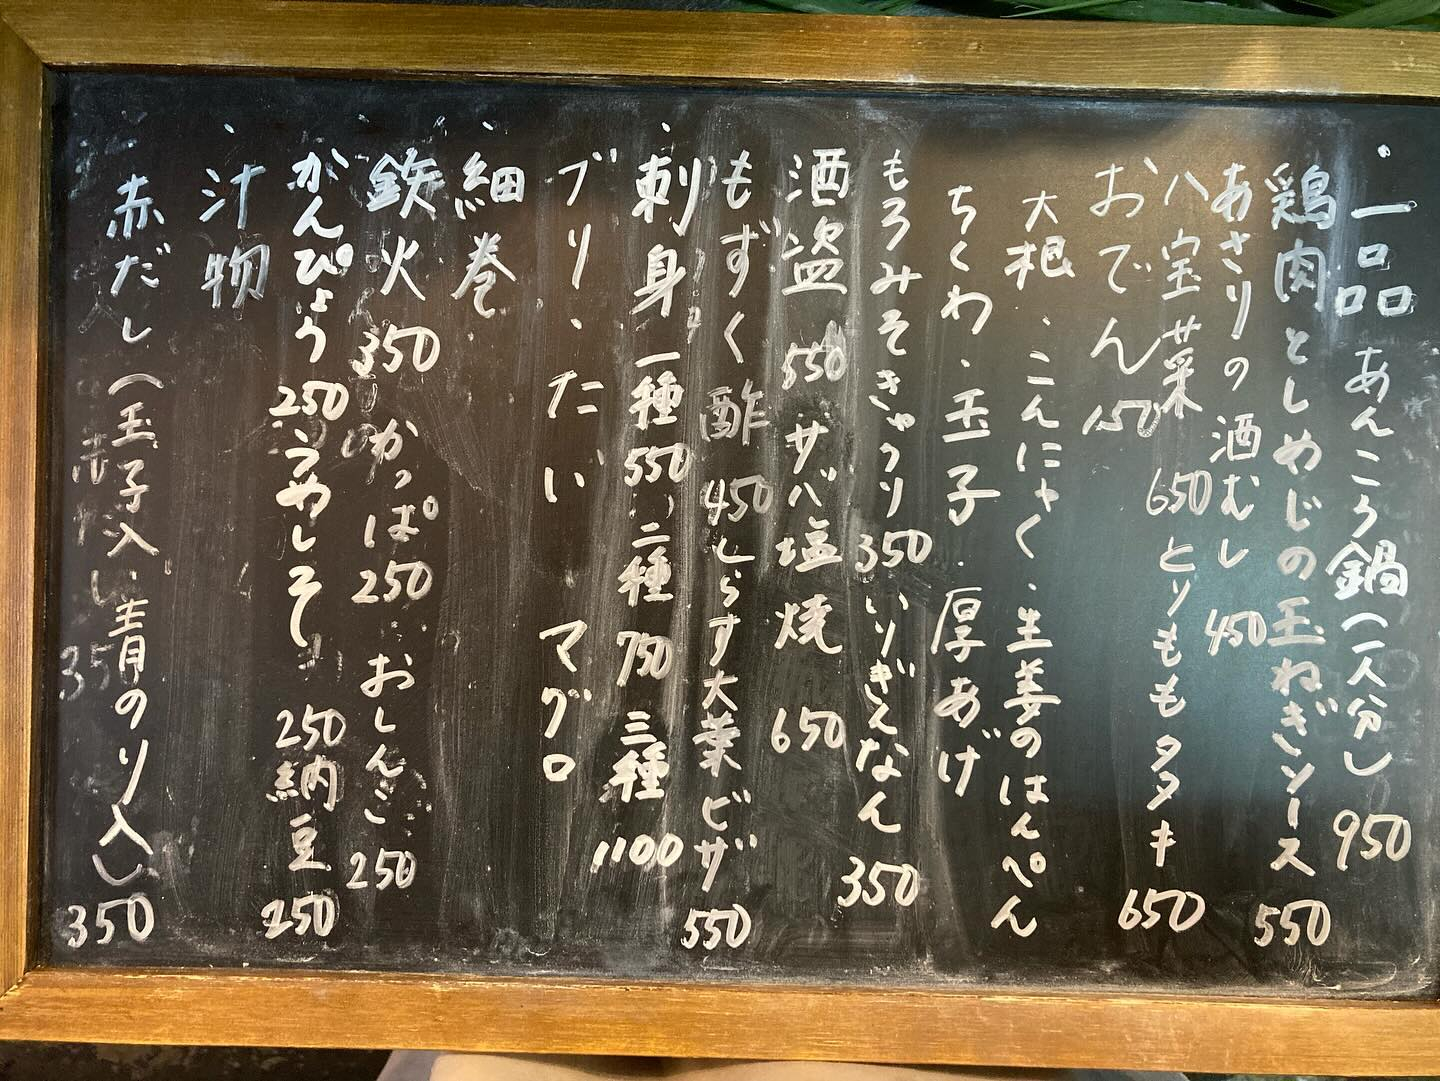 ・一品 あんこう鍋(一人分) 950
鶏肉としめじの玉ねぎソース 550
あさりの酒むし 450
八宝菜 650 とりももタタキ 650
おでん 150
大根・こんにゃく・生姜のはんぺん
ちくわ・玉子・厚あげ
もろみそきゅうり 350 いりぎんなん 350
酒盗 550 サバ塩焼 650
もずく酢 450 しらす大葉ピザ 550
・刺身 一種 550 二種 750 三種 1100
ブリ・たい マグロ
・細巻
鉄火 350 かっぱ 250 おしんこ 250
かんぴょう 250 うめしそ 250 納豆 250
・汁物
赤だし(玉子入り 青のり入り) 350